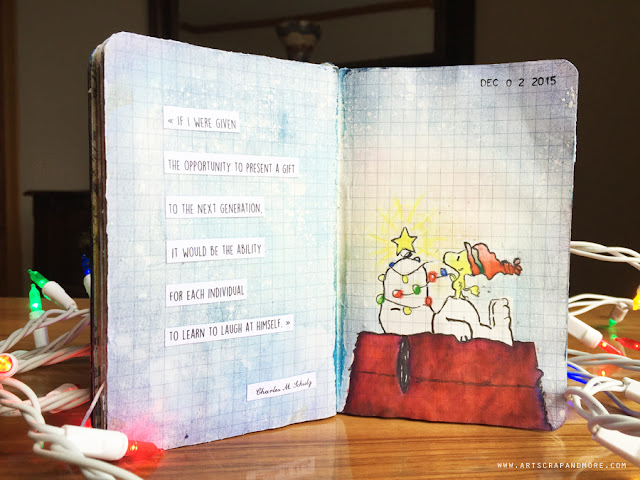 « IF I WERE GIVEN
THE OPPORTUNITY TO PRESENT A GIFT
TO THE NEXT GENERATION,
IT WOULD BE THE ABILITY
FOR EACH INDIVIDUAL
TO LEARN TO LAUGH AT HIMSELF. »
Charles M. Schulz
DEC 02 2015
WWW.ARTSCRAPANDMORE.COM